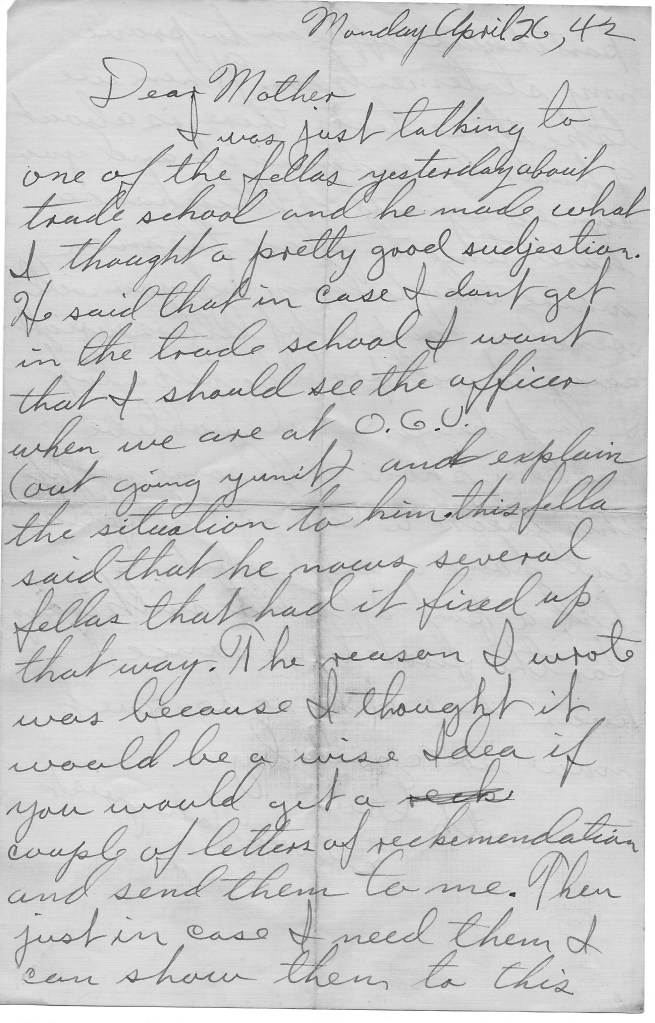 Monday April 26, 42
Dear Mother
I was just talking to
one of the fellas yesterday about
trade school and he made what
I thought a pretty good sudjestion.
He said that in case I dont get
in the trade school I want
that I should see the officer
when we are at O.G.U.
(out going yunit) and explain
the situation to him. this fella
said that he nows several
fellas that had it fixed up
that way. The reason I wrote
was because I thought it
would be a wise Idea if
you would get a
couple of letters of reckemendation
and send them to me. Then
just in case I need them I
can show them to this